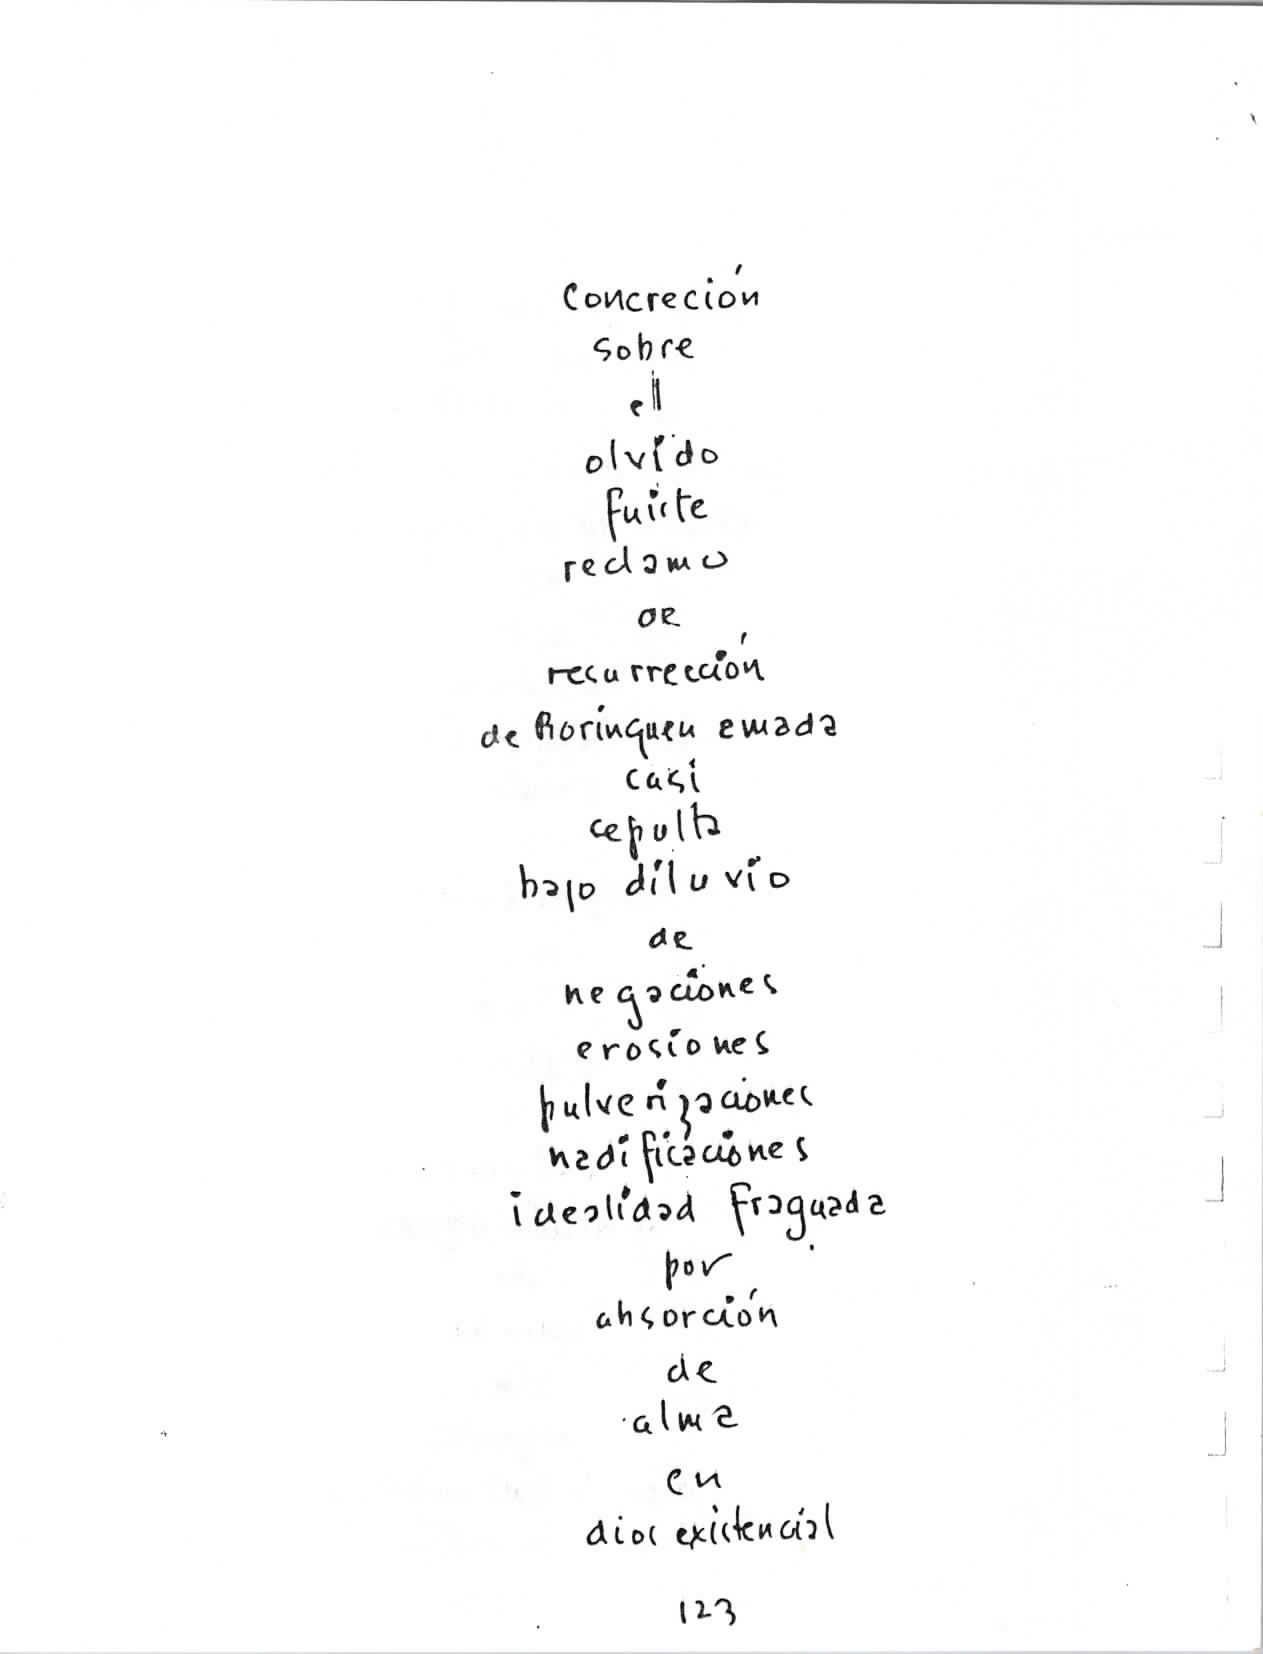 Concreción
sobre
el
olvido
fuiste
reclamo
de
resurrección
de Borinquen amada
casi
sepulta
bajo diluvio
de
negaciones
erosiones
pulverizaciones
nadificaciones
idealidad fraguada
por
absorción
de
alma
en
dios existencial
123